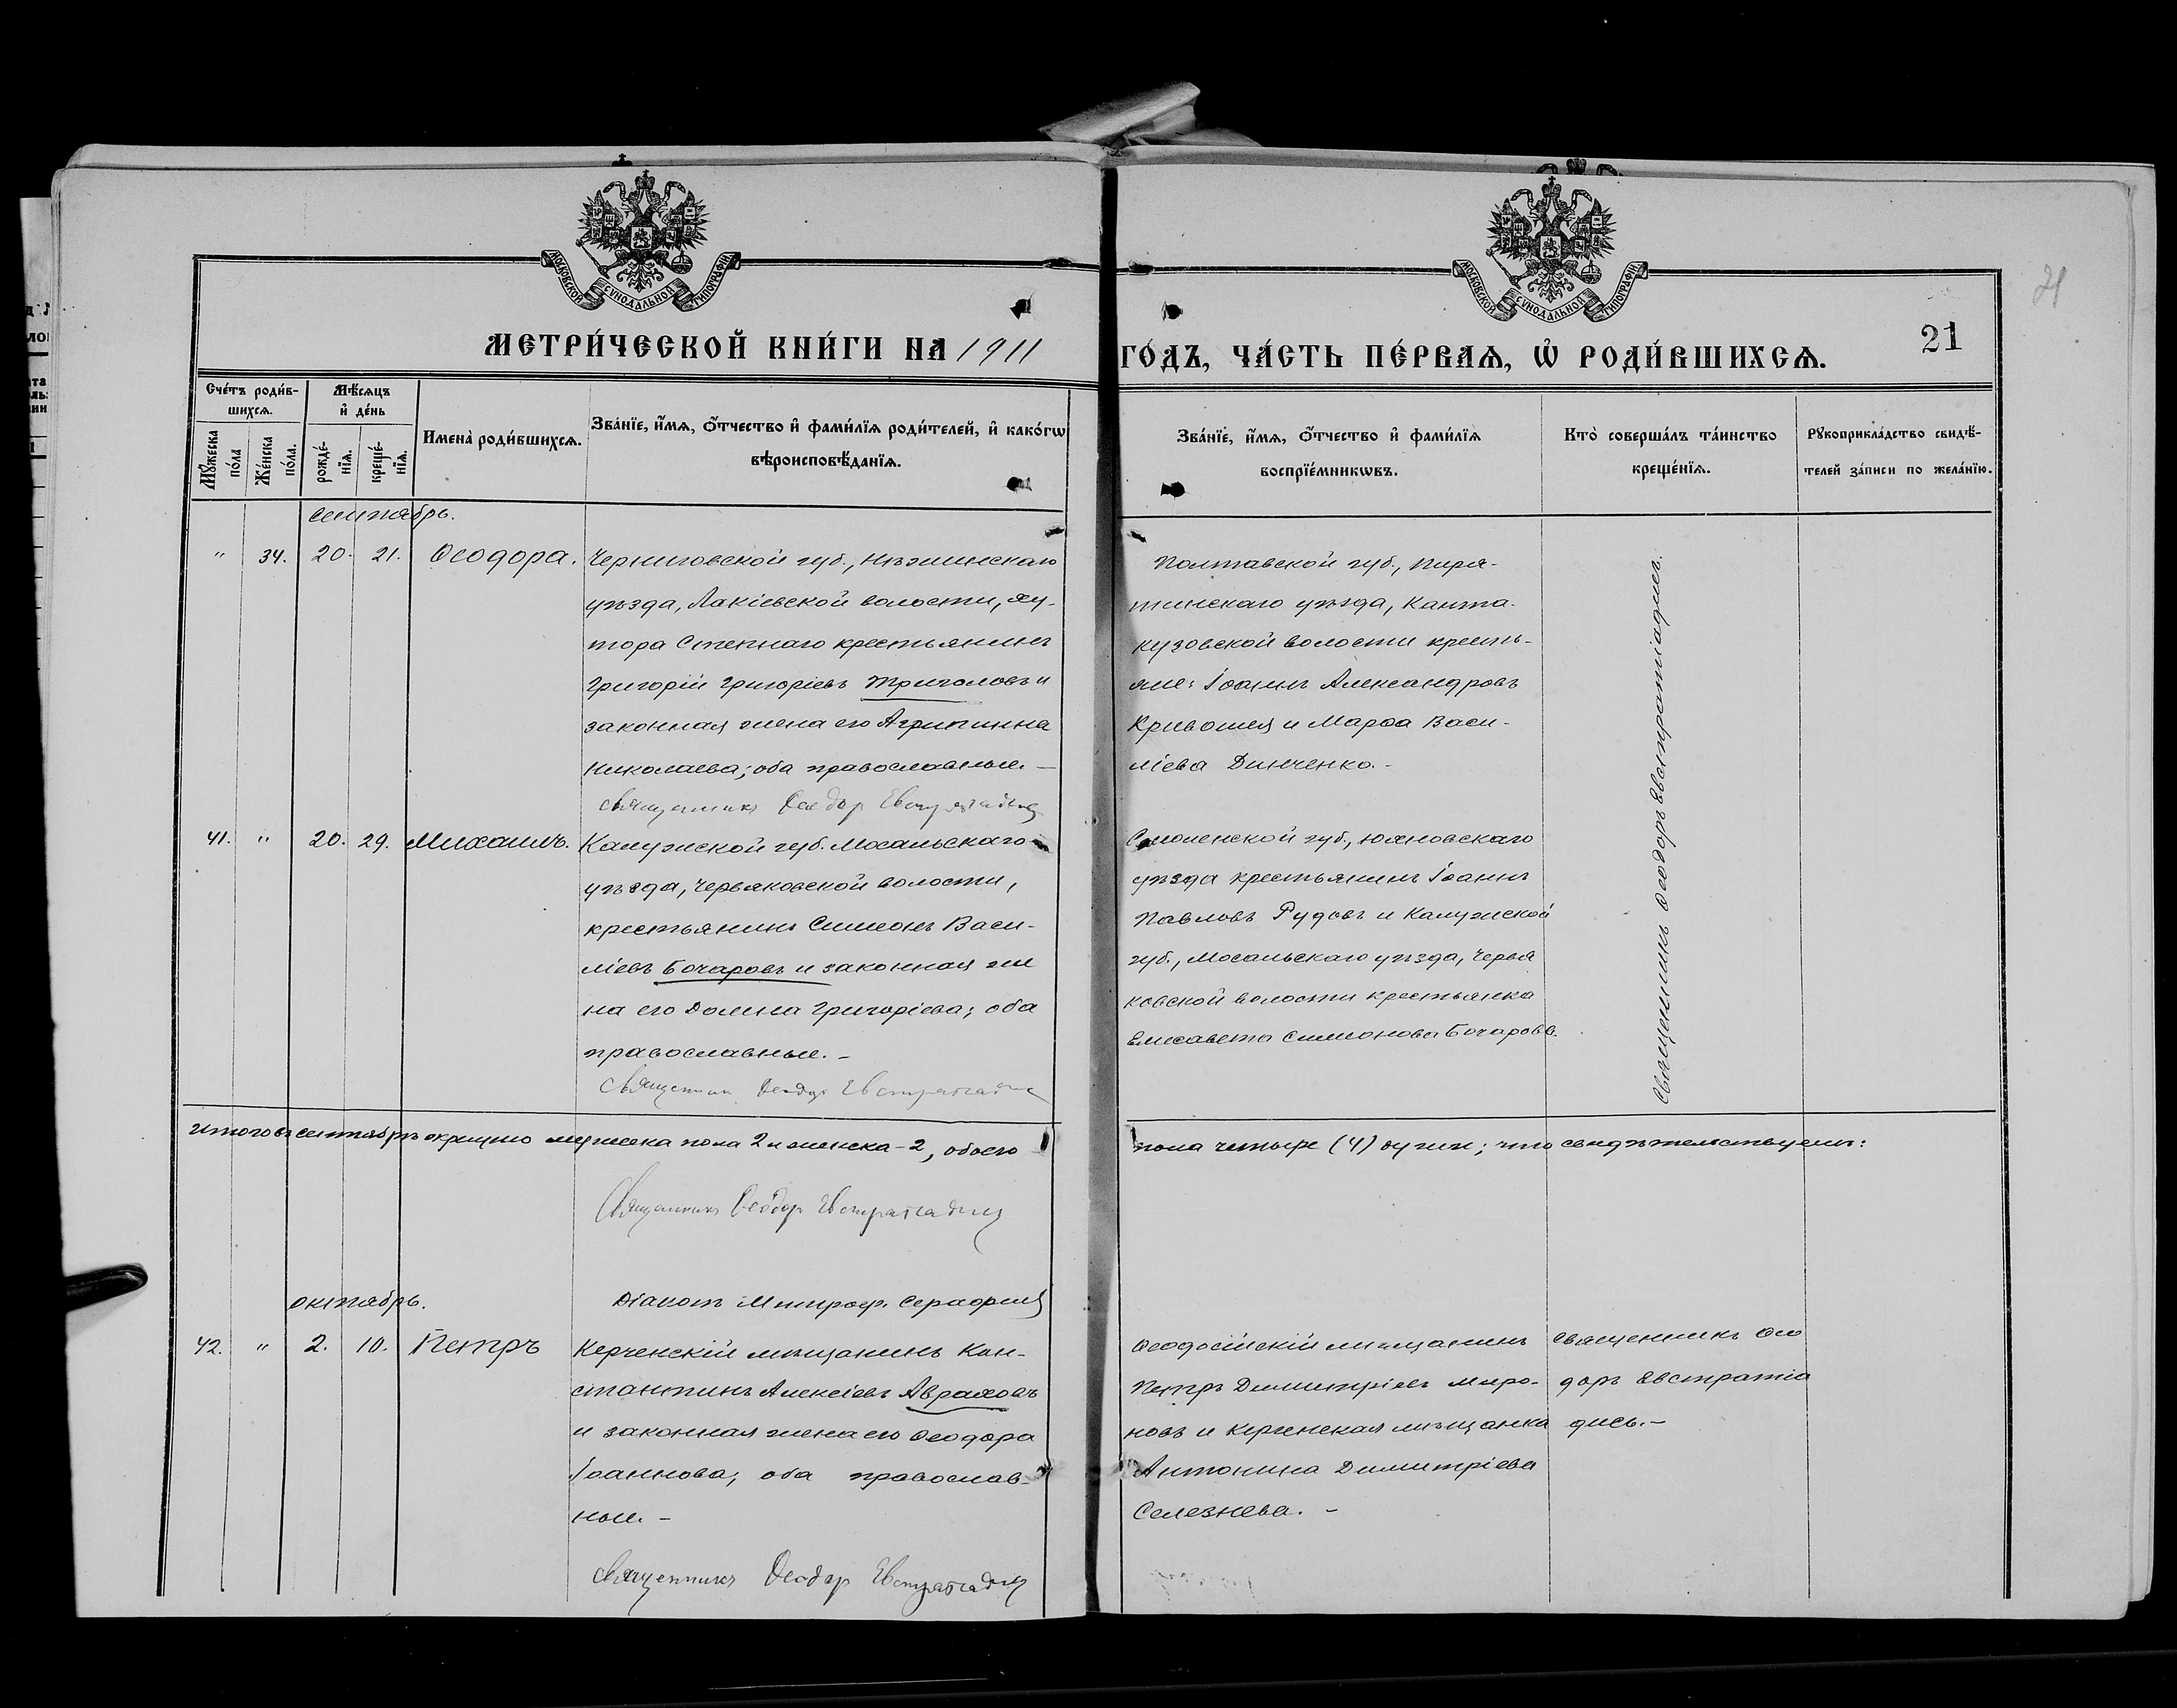 МОСКОВСКОЙ СУНОДАЛЬНОЙ ТИПОГРАФІИ
МОСКОВСКОЙ СУНОДАЛЬНОЙ ТИПОГРАФІИ
21
21
МЕТРИ́ЧЕСКОЙ КНИ́ГИ НА 1911
ГО́ДЪ, ЧА́СТЬ ПЕ́РВАѦ, Ѡ҆ РОДИ́ВШИХСѦ.
Сче́тъ роди́в-
шихсѧ.
Мѣ́сѧцъ
и҆ де́нь
Мꙋ́жеска
по́ла
Же́нска
по́ла.
рожде́-
нїѧ.
креще́-
нїѧ.
Имена̀ роди́вшихсѧ.
Зва́нїе, и҆́мѧ, ѻ҆́тчество и҆ фами́лїѧ роди́телей, и҆ како́гѡ
вѣроисповѣ́данїѧ.
Зва́нїе, и҆́мѧ, ѻ҆́тчество и҆ фами́лїѧ
воспрїе́мникѡвъ.
Кто̀ соверша́лъ та́инство
креще́нїѧ.
Рꙋкоприкла́дство свидѣ́-
телей за́писи по жела́нїю.
Сентябрь.
" 34. 20. 21. Ѳеодора.
Черниговской губ., Нѣжинскаго
уѣзда, Лакіевской волости, ху-
тора Степнаго крестьянинъ
Григорій Григоріевъ Триголовъ и
законная жена его Агрипинна
Николаева; оба православные. —
Священникъ Ѳеодор Евстратіадись
Полтавской губ., Пиря-
тинскаго уѣзда, Канта-
кузовской волости кресть-
яне: Іоаннъ Александровъ
Кривошея и Марѳа Васи-
ліева Динченко. -
Священникъ Ѳеодоръ Евстратіадись.
41. " 20. 29. Михаилъ.
Калужской губ. Мосальскаго
уѣзда, Червяковской волости,
крестьянинъ Симеонъ Васи-
ліевъ Бочаровъ и законная же
на его Домна Григоріева; оба
православные. -
Священник Ѳеодор Евстратіадись
Смоленской губ., Юхновскаго
уѣзда крестьянинъ Іоаннъ
Павловъ Рудовъ и Калужской
губ., Мосальскаго уѣзда, Червя
ковской волости крестьянка
Елисавета Симеонова Бочарова.
Итого въ сентябрѣ окрещено мужеска пола 2 и женска - 2, обоего
пола четыре (4) душ; что свидѣтельствуемъ:
Священникъ Ѳеодор Евстратіадись
Діаконъ Митроф. Серафим
октябрь.
42. " 2. 10. Петръ
Керченскій мѣщанинъ Кон-
стантинъ Алексіевъ Авраховъ
и законная жена его Ѳеодора
Іоаннова; оба православ-
ные. -
Священникъ Ѳеодор Евстратіадись
Ѳеодосійскій мѣщанинъ
Петръ Димитріевъ Миро-
новъ и Керченская мѣщанка
Антонина Димитріева
Селезнева. -
священникъ Ѳео
доръ Евстратіа
дись. -